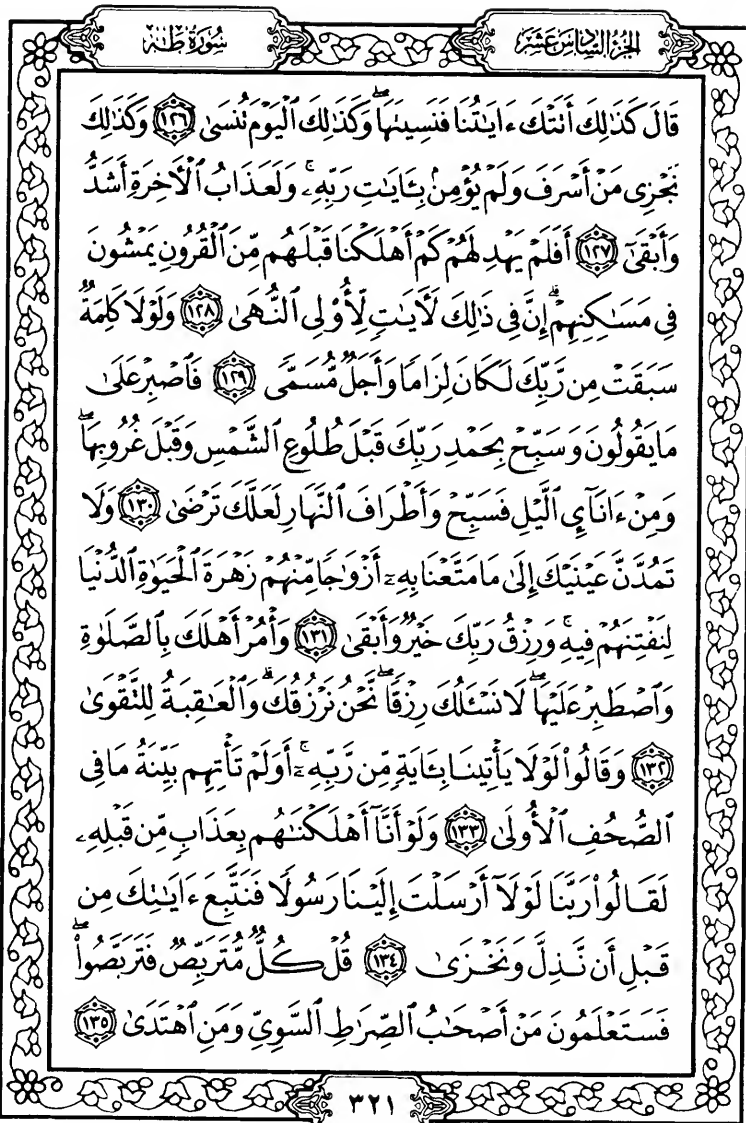 سُورَةُ طه
الجُزْءُ السَّادِسَ عَشَرَ
قَالَ كَذَٰلِكَ أَتَتْكَ ءَايَٰتُنَا فَنَسِيتَهَاۖ وَكَذَٰلِكَ ٱلْيَوْمَ تُنسَىٰ ١٢٦ وَكَذَٰلِكَ
نَجْزِى مَنْ أَسْرَفَ وَلَمْ يُؤْمِنۢ بِـَٔايَٰتِ رَبِّهِۦۚ وَلَعَذَابُ ٱلْءَاخِرَةِ أَشَدُّ
وَأَبْقَىٰٓ ١٢٧ أَفَلَمْ يَهْدِ لَهُمْ كَمْ أَهْلَكْنَا قَبْلَهُم مِّنَ ٱلْقُرُونِ يَمْشُونَ
فِى مَسَٰكِنِهِمْۗ إِنَّ فِى ذَٰلِكَ لَءَايَٰتٍ لِّأُو۟لِى ٱلنُّهَىٰ ١٢٨ وَلَوْلَا كَلِمَةٌ
سَبَقَتْ مِن رَّبِّكَ لَكَانَ لِزَامًا وَأَجَلٌ مُّسَمًّى ١٢٩ فَٱصْبِرْ عَلَىٰ
مَا يَقُولُونَ وَسَبِّحْ بِحَمْدِ رَبِّكَ قَبْلَ طُلُوعِ ٱلشَّمْسِ وَقَبْلَ غُرُوبِهَاۖ
وَمِنْ ءَانَآئِ ٱلَّيْلِ فَسَبِّحْ وَأَطْرَافَ ٱلنَّهَارِ لَعَلَّكَ تَرْضَىٰ ١٣٠ وَلَا
تَمُدَّنَّ عَيْنَيْكَ إِلَىٰ مَا مَتَّعْنَا بِهِۦٓ أَزْوَٰجًا مِّنْهُمْ زَهْرَةَ ٱلْحَيَوٰةِ ٱلدُّنْيَا
لِنَفْتِنَهُمْ فِيهِۚ وَرِزْقُ رَبِّكَ خَيْرٌ وَأَبْقَىٰ ١٣١ وَأْمُرْ أَهْلَكَ بِٱلصَّلَوٰةِ
وَٱصْطَبِرْ عَلَيْهَاۖ لَا نَسْـَٔلُكَ رِزْقًاۖ نَّحْنُ نَرْزُقُكَۗ وَٱلْعَٰقِبَةُ لِلتَّقْوَىٰ
١٣٢ وَقَالُوا۟ لَوْلَا يَأْتِينَا بِـَٔايَةٍ مِّن رَّبِّهِۦٓۚ أَوَلَمْ تَأْتِهِم بَيِّنَةُ مَا فِى
ٱلصُّحُفِ ٱلْأُولَىٰ ١٣٣ وَلَوْ أَنَّآ أَهْلَكْنَٰهُم بِعَذَابٍ مِّن قَبْلِهِۦ
لَقَالُوا۟ رَبَّنَا لَوْلَآ أَرْسَلْتَ إِلَيْنَا رَسُولًا فَنَتَّبِعَ ءَايَٰتِكَ مِن
قَبْلِ أَن نَّذِلَّ وَنَخْزَىٰ ١٣٤ قُلْ كُلٌّ مُّتَرَبِّصٌ فَتَرَبَّصُوا۟ۖ
فَسَتَعْلَمُونَ مَنْ أَصْحَٰبُ ٱلصِّرَٰطِ ٱلسَّوِىِّ وَمَنِ ٱهْتَدَىٰ ١٣٥
٣٢١